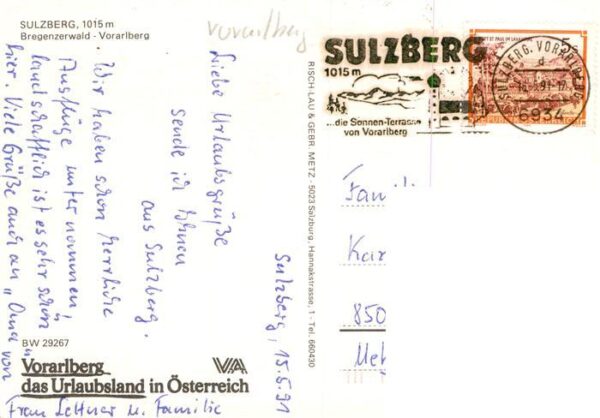 SULZBERG, 1015 m
Bregenzerwald - Vorarlberg
Vorarlberg
Sulzberg, 15.5.91
Liebe Urlaubsgrüße
sende ich Ihnen
aus Sulzberg.
Wir haben schon herrliche
Ausflüge unternommen,
landschaftlich ist es sehr schön
hier. Viele Grüße auch an "Oma" von
Frau Lettner u. Familie
BW 29267
Vorarlberg VA
das Urlaubsland in Österreich
RISCH-LAU & GEBR. METZ - 5023 Salzburg, Hannakstrasse, 1 - Tel. 660430
SULZBERG
1015 m
...die Sonnen-Terrasse
von Vorarlberg
SULZBERG, VORARLBG
d
6934
5S
Fam
Kar
850